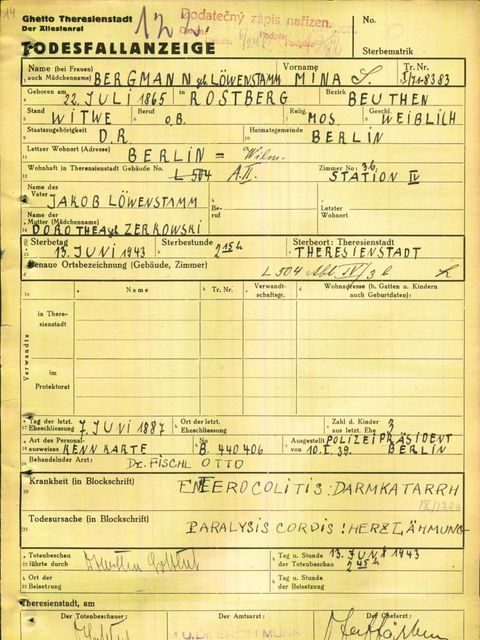 14
Ghetto Theresienstadt
Der Ältestenrat
Dodatečný zápis nařízen.
Datum Podpis
No.
TODESFALLANZEIGE
Sterbematrik
Name (bei Frauen) auch Mädchenname) BERGMANN geb LÖWENSTAMM Vorname MINA S. Tr. Nr. I/71-8383
Geboren am 22. JULI 1865 in ROSTBERG Bezirk BEUTHEN
Stand WITWE Beruf o.B. Relig. MOS. Geschl. WEIBLICH
Staatszugehörigkeit D.R. Heimatsgemeinde BERLIN
Letzter Wohnort (Adresse) BERLIN = Wilm.
Wohnhaft in Theresienstadt Gebäude No. L 504 A.II. Zimmer No. 36. STATION IV
Name des Vaters JAKOB LÖWENSTAMM Beruf Letzter Wohnort
Name der Mutter (Mädchenname) DOROTHEA geb ZERKOWSKI
Sterbetag 13. JUNI 1943 Sterbestunde 2 15 h Sterbeort: Theresienstadt THERESIENSTADT
Genaue Ortsbezeichnung (Gebäude, Zimmer) L 504 Abt IV/3 b
Name Tr. Nr. Verwandtschaftsgr. Wohnadresse (b. Gatten u. Kindern auch Geburtsdaten):
Verwandte
in Theresienstadt
im Protektorat
Tag der letzt. Eheschliessung 7. JUNI 1887 Ort der letzt. Eheschliessung Zahl d. Kinder aus letzt. Ehe 3
Art des Personalausweises KENNKARTE No. B. 440406 Ausgestellt von POLIZEIPRÄSIDENT 10.I.39. BERLIN
Behandelnder Arzt: Dr. FISCHL OTTO
Krankheit (in Blockschrift) ENTEROCOLITIS: DARMKATARRH
Todesursache (in Blockschrift) PARALYSIS CORDIS: HERZLÄHMUNG
Totenbeschau führte durch Tag u. Stunde der Totenbeschau 13. JUNI 1943 2 45 h
Ort der Beisetzung Tag u. Stunde der Beisetzung
Theresienstadt, am
Der Totenbeschauer: Der Amtsarzt: Der Chefarzt:
MUDr. ERICH MUNK